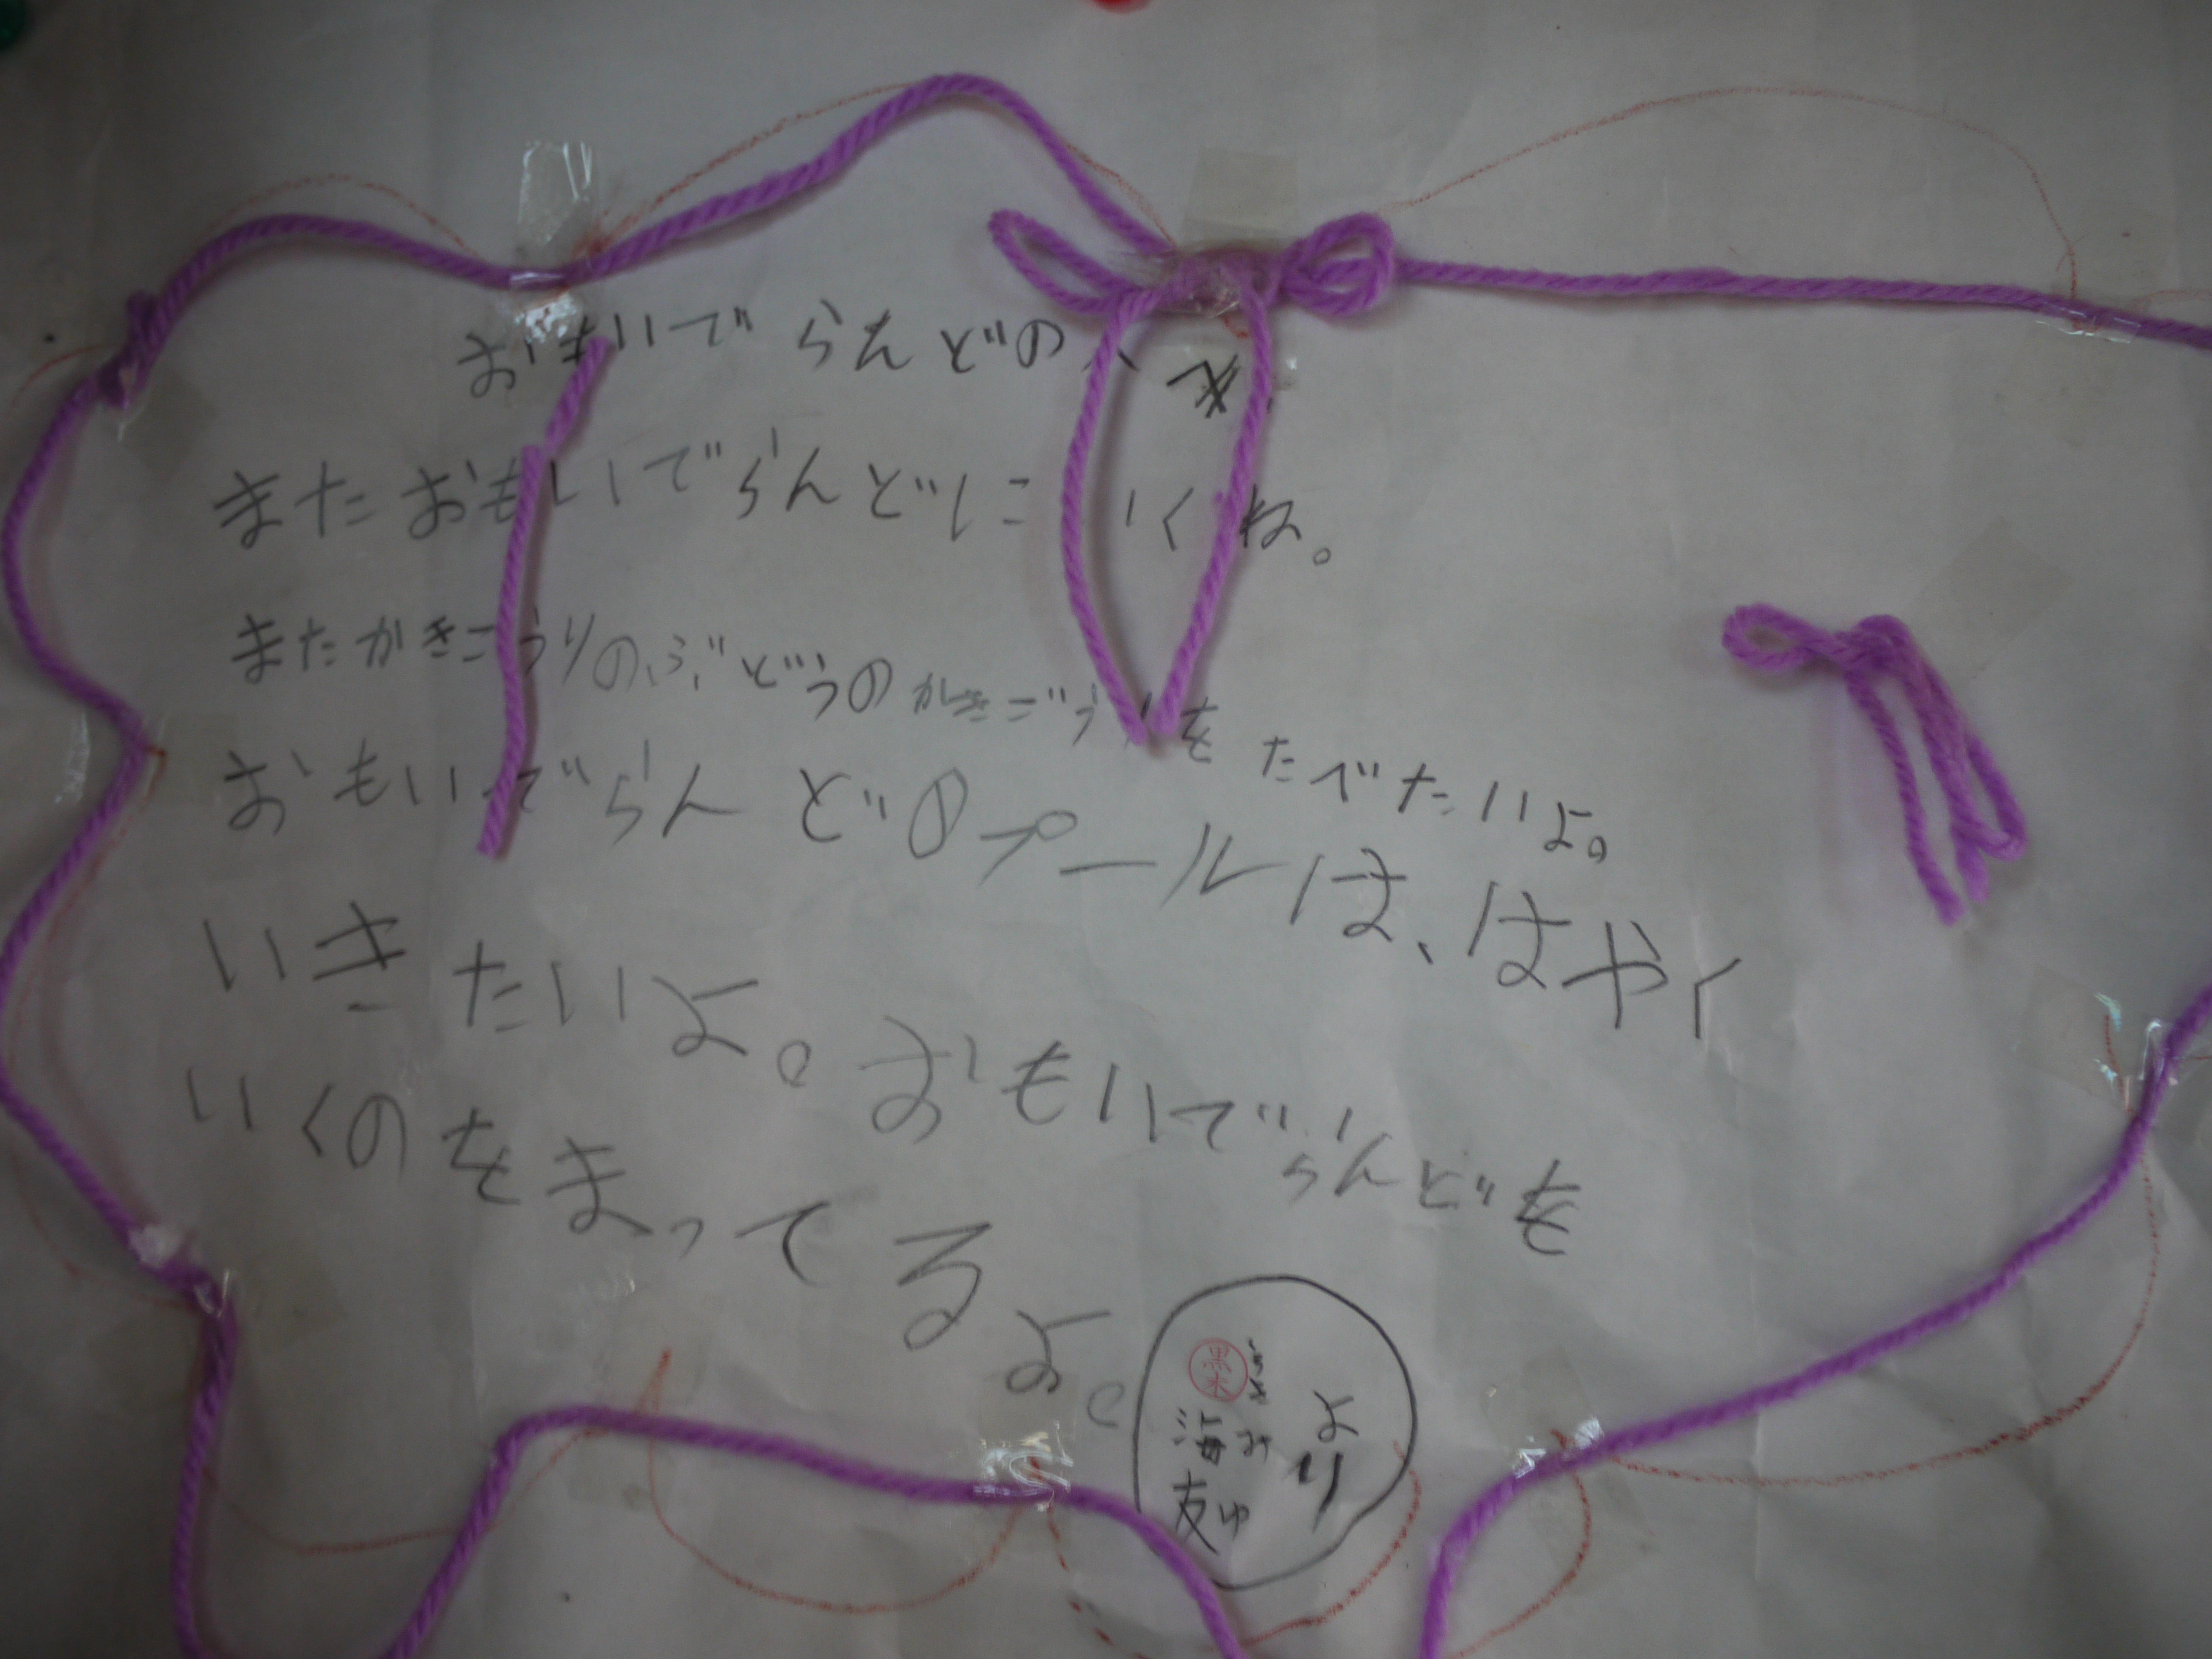 おもいでらんどの
またおもいでらんどにいくね。
またかきこうりのぶどうのかきごうりをたべたいよ。
おもいでらんどのプールは、はやく
いきたいよ。おもいでらんどを
いくのをまってるよ。
より
黒木
海み
友ゆ